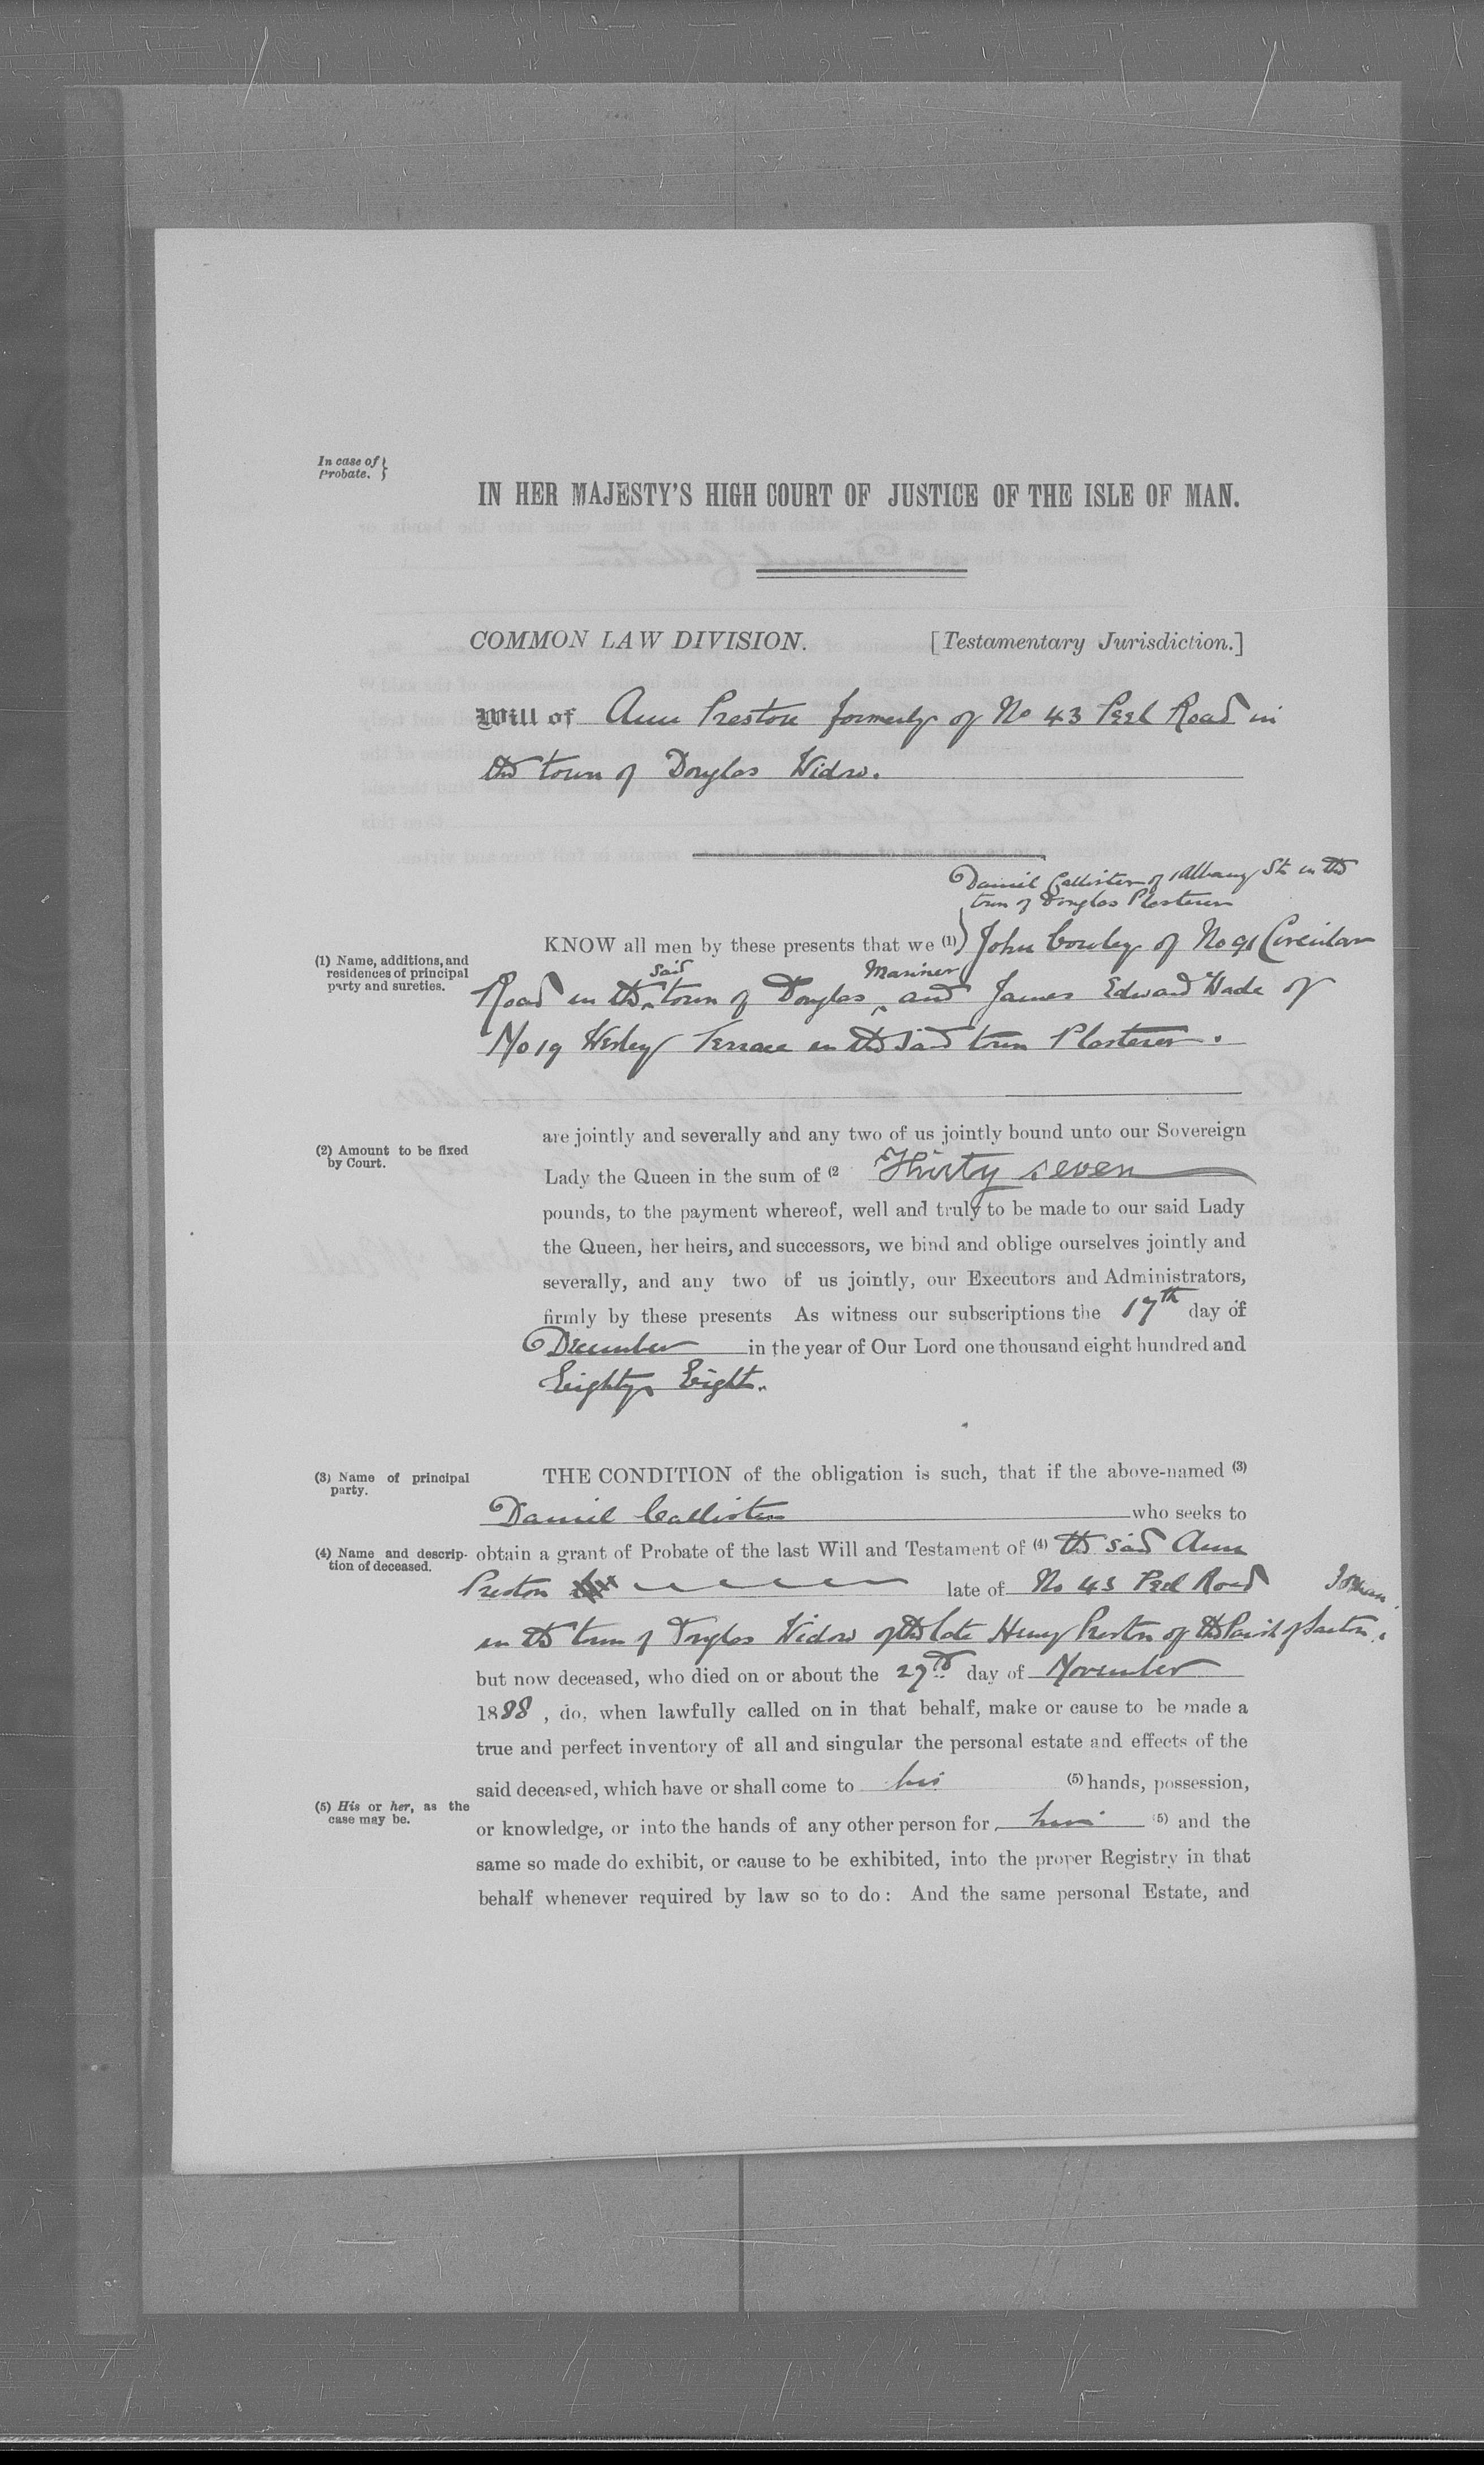 In case of }
Probate. }
IN HER MAJESTY'S HIGH COURT OF JUSTICE OF THE ISLE OF MAN.
COMMON LAW DIVISION. [Testamentary Jurisdiction.]
Will of Ann Preston formerly of No 43 Peel Road in
the town of Douglas Widow.
Daniel Callister of 1 Albany St in the
town of Douglas Plasterer
KNOW all men by these presents that we (1) John Cowley of No 91 Circular
(1) Name, additions, and
residences of principal
party and sureties.
said Mariner
Road in the town of Douglas and James Edward Wade of
No 19 Wesley Terrace in the said town Plasterer.
are jointly and severally and any two of us jointly bound unto our Sovereign
(2) Amount to be fixed
by Court.
Lady the Queen in the sum of (2 Thirty seven
pounds, to the payment whereof, well and truly to be made to our said Lady
the Queen, her heirs, and successors, we bind and oblige ourselves jointly and
severally, and any two of us jointly, our Executors and Administrators,
firmly by these presents As witness our subscriptions the 17th day of
December in the year of Our Lord one thousand eight hundred and
Eighty Eight.
(3) Name of principal
party.
THE CONDITION of the obligation is such, that if the above-named (3)
Daniel Callister who seeks to
(4) Name and descrip-
tion of deceased.
obtain a grant of Probate of the last Will and Testament of (4) the said Ann
Preston late of No 43 Peel Road
in the town of Douglas Widow of the late Henry Preston of the Parish of Santon
but now deceased, who died on or about the 27th day of November
1888, do, when lawfully called on in that behalf, make or cause to be made a
true and perfect inventory of all and singular the personal estate and effects of the
said deceased, which have or shall come to his (5) hands, possession,
(5) His or her, as the
case may be.
or knowledge, or into the hands of any other person for him (5) and the
same so made do exhibit, or cause to be exhibited, into the proper Registry in that
behalf whenever required by law so to do: And the same personal Estate, and